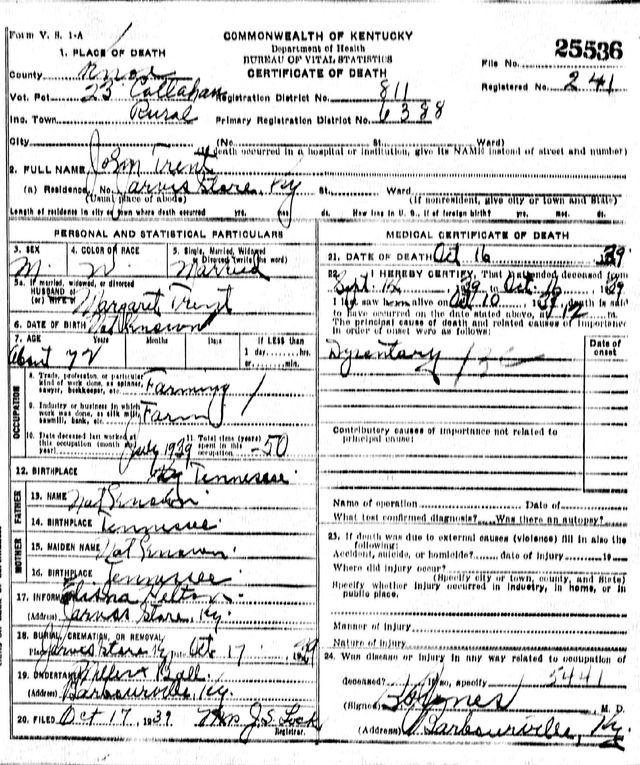 Form V. S. 1-A
COMMONWEALTH OF KENTUCKY
Department of Health
BUREAU OF VITAL STATISTICS
CERTIFICATE OF DEATH
File No. 25536
Registered No. 241
1. PLACE OF DEATH
County Knox
Vot. Pct 23 Callahan Registration District No. 811
Inc. Town Rural Primary Registration District No. 6388
City (No. St. Ward)
(If death occurred in a hospital or institution, give its NAME instead of street and number)
2. FULL NAME John Trent
(a) Residence. No. Jarvis Store, Ky St. Ward
(Usual place of abode) (If nonresident, give city or town and State)
Length of residence in city or town where death occurred yrs. mos. ds. How long in U. S., if of foreign birth? yrs. mos. ds.
PERSONAL AND STATISTICAL PARTICULARS
3. SEX 4. COLOR OR RACE 5. Single, Married, Widowed or Divorced (write the word)
M. W. Married
5a. If married, widowed, or divorced
HUSBAND of
(or) WIFE of Margaret Trent
6. DATE OF BIRTH Not Known
7. AGE Years Months Days If LESS than
About 72 1 day, hrs.
or min.
OCCUPATION
8. Trade, profession, or particular kind of work done, as spinner, sawyer, bookkeeper, etc. Farming
9. Industry or business in which work was done, as silk mill, sawmill, bank, etc. Farm
10. Date deceased last worked at this occupation (month and year) July 1939 11. Total time (years) spent in this occupation 50
12. BIRTHPLACE Tennessee
FATHER
13. NAME Not Known
14. BIRTHPLACE Tennessee
MOTHER
15. MAIDEN NAME Not Known
16. BIRTHPLACE Tennessee
17. INFORMANT Helton
(Address) Jarvis Store, Ky.
18. BURIAL, CREMATION, OR REMOVAL
Place Jarvis Store Ky Date Oct 17 1939
19. UNDERTAKER Ball
(Address) Barbourville, Ky.
20. FILED Oct 17, 1939 Mrs J. S. Lock
Registrar.
MEDICAL CERTIFICATE OF DEATH
21. DATE OF DEATH Oct 16 39
22. I HEREBY CERTIFY, That I attended deceased from
Sept. 12, 39 to Oct. 16 1939
I last saw him alive on Oct 10, 1939 death is said
to have occurred on the date stated above, at 12 m.
The principal cause of death and related causes of importance
in order of onset were as follows:
Date of onset
Dysentary
Contributory causes of importance not related to
principal cause:
Name of operation Date of
What test confirmed diagnosis? Was there an autopsy?
23. If death was due to external causes (violence) fill in also the
following:
Accident, suicide, or homicide? date of injury 19
Where did injury occur?
(Specify city or town, county, and State)
Specify whether injury occurred in industry, in home, or in
public place.
Manner of injury
Nature of injury
24. Was disease or injury in any way related to occupation of
deceased? If so, specify 5441
(Signed) Jones M. D.
(Address) Barbourville, Ky.